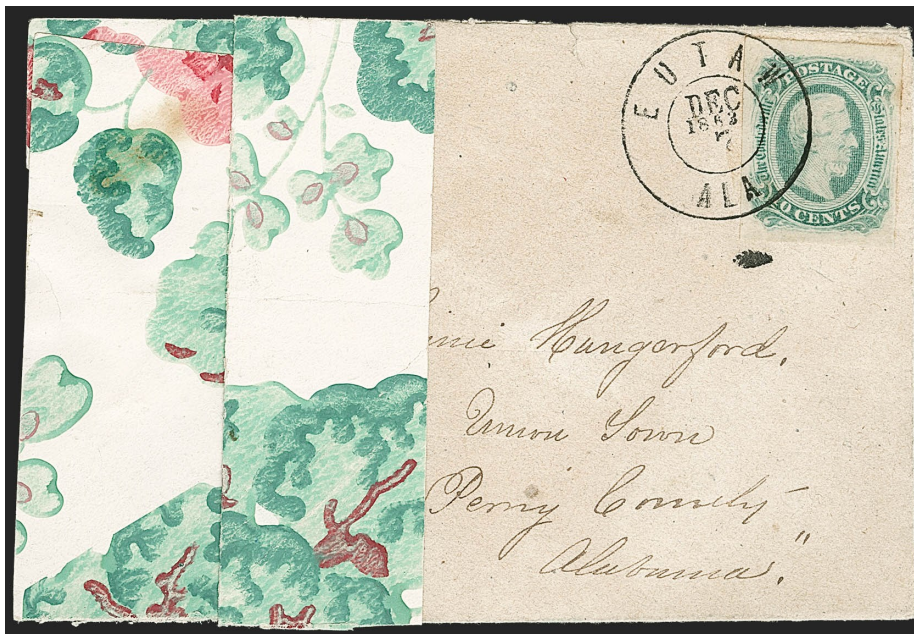 EUTAW
DEC
1863
7
ALA
POSTAGE
The Confederate States of America
10 CENTS
nnie Hungerford,
Union Town
Perry County
Alabama."